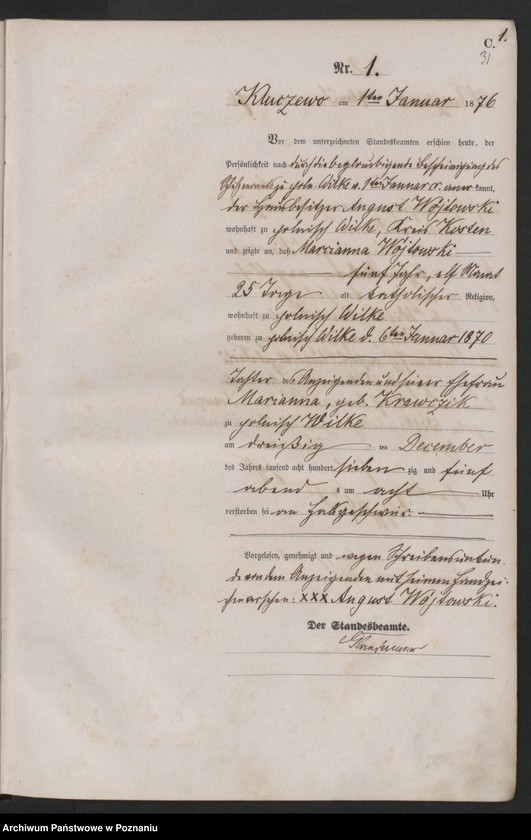 C. 1.
31
Nr. 1.
Kluczewo am 1ten Januar 1876
Vor dem unterzeichneten Standesbeamten erschien heute, der
Persönlichkeit nach durch die beglaubigende Bescheinigung des
zu poln. Wilke v. 1ten Januar cr. anerkannt,
der Hausbesitzer August Wojtowski
wohnhaft zu polnisch Wilke, Kreis Kosten
und zeigte an, daß Marcianna Wojtowski
fünf Jahr, elf Monat
25 Tage alt katholischer Religion,
wohnhaft zu polnisch Wilke
geboren zu polnisch Wilke d. 6ten Januar 1870
Tochter des Anzeigenden und seiner Ehefrau
Marianna, geb. Krawczik
zu polnisch Wilke
am dreißig ten December
des Jahres tausend acht hundert sieben zig und fünf
abend s um acht Uhr
verstorben sei an Halsgeschwür.
Vorgelesen, genehmigt und wegen Schreibensunkun-
de von dem Anzeigenden mit seinem Handzei-
chen versehen: XXX August Wojtowski.
Der Standesbeamte.
Archiwum Państwowe w Poznaniu